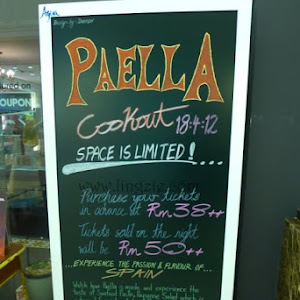 Design by
PAELLA
Cookout 18.4.12
SPACE IS LIMITED!....
Purchase your tickets
in advance at Rm 38++
Tickets sold on the night
will be Rm 50++
...EXPERIENCE THE PASSION & FLAVOUR OF...
SPAIN
Watch how Paella is made and experience the
taste of Seafood Paella, Bayonne Salad which
OUPON